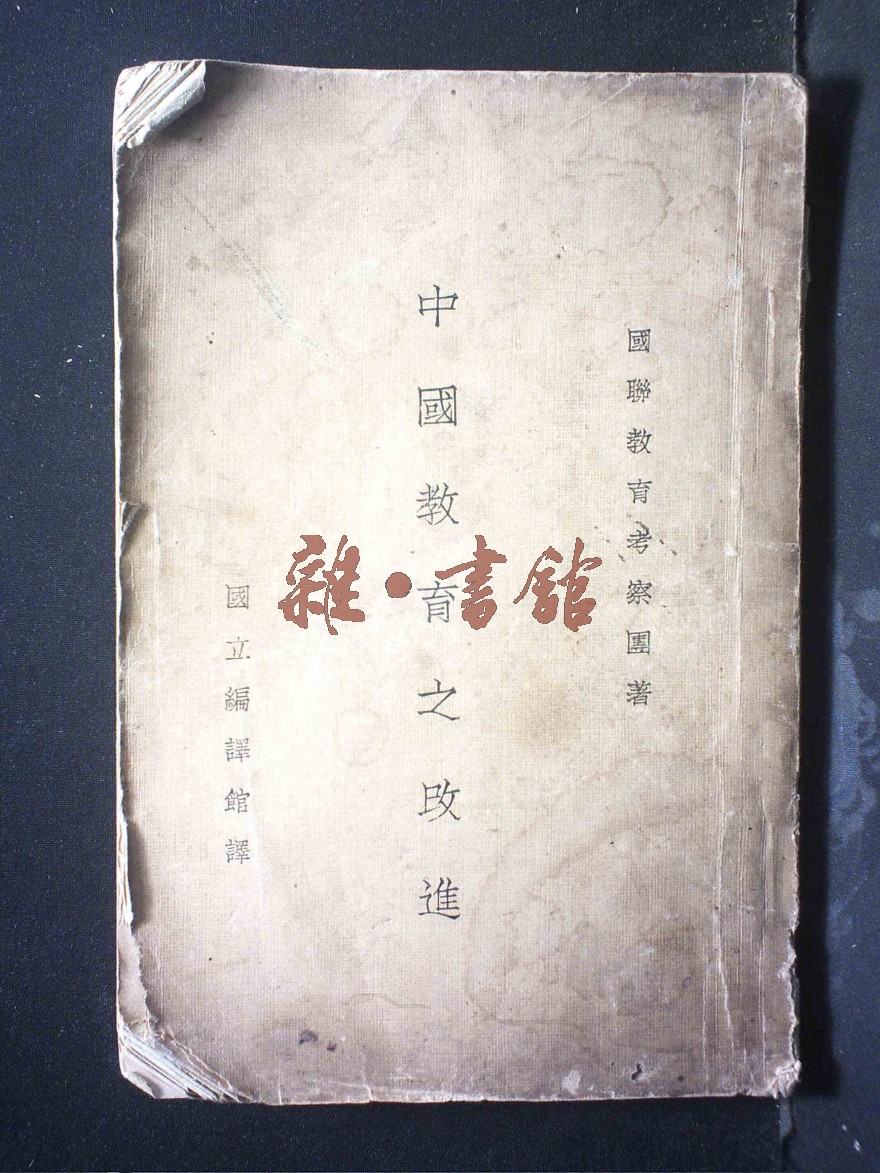 國聯教育考察團著
中國教育之改進
國立編譯館譯
雜·書館